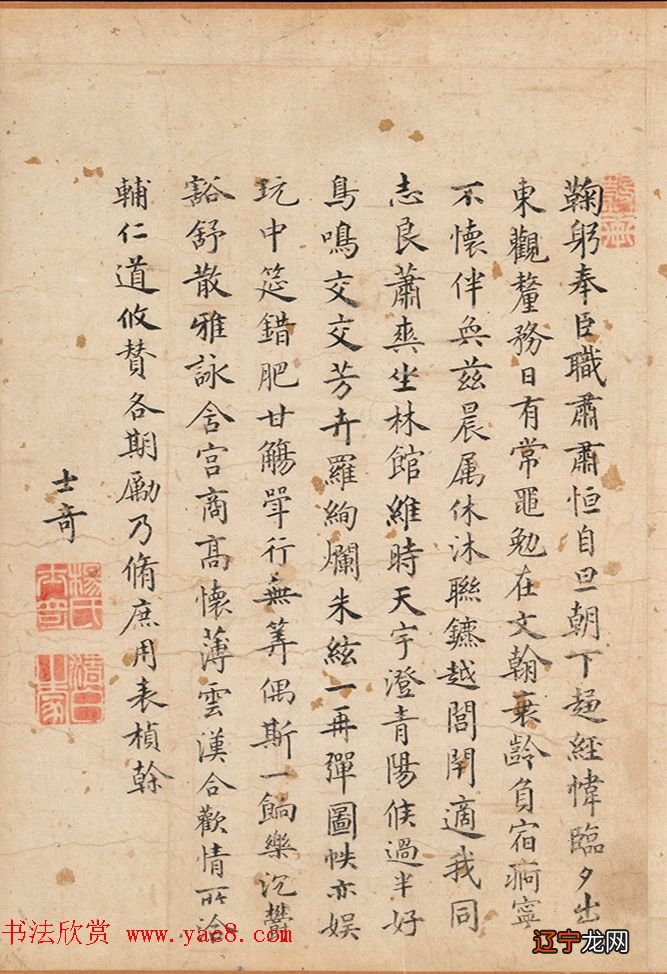 鞠躬奉臣職肅肅恒自旦朝下趨經幃臨夕出
東觀釐務日有常黽勉在文翰衰齡負宿痾寧
不懷伴奐茲晨属休沐聯鑣越閭閈適我同
志良蕭爽坐林館維時天宇澄青陽候過半好
鳥鳴交交芳卉羅絢爛朱絃一再彈圖帙亦娱
玩中筵錯肥甘觴斝行無筭偶斯一餉樂沉鬱
豁舒散雅詠含宫商高懷薄雲漢合歡情所洽
輔仁道攸賛各期勵乃脩庶用表楨榦
士奇
书法欣赏 www.yac8.com
辽宁龙网